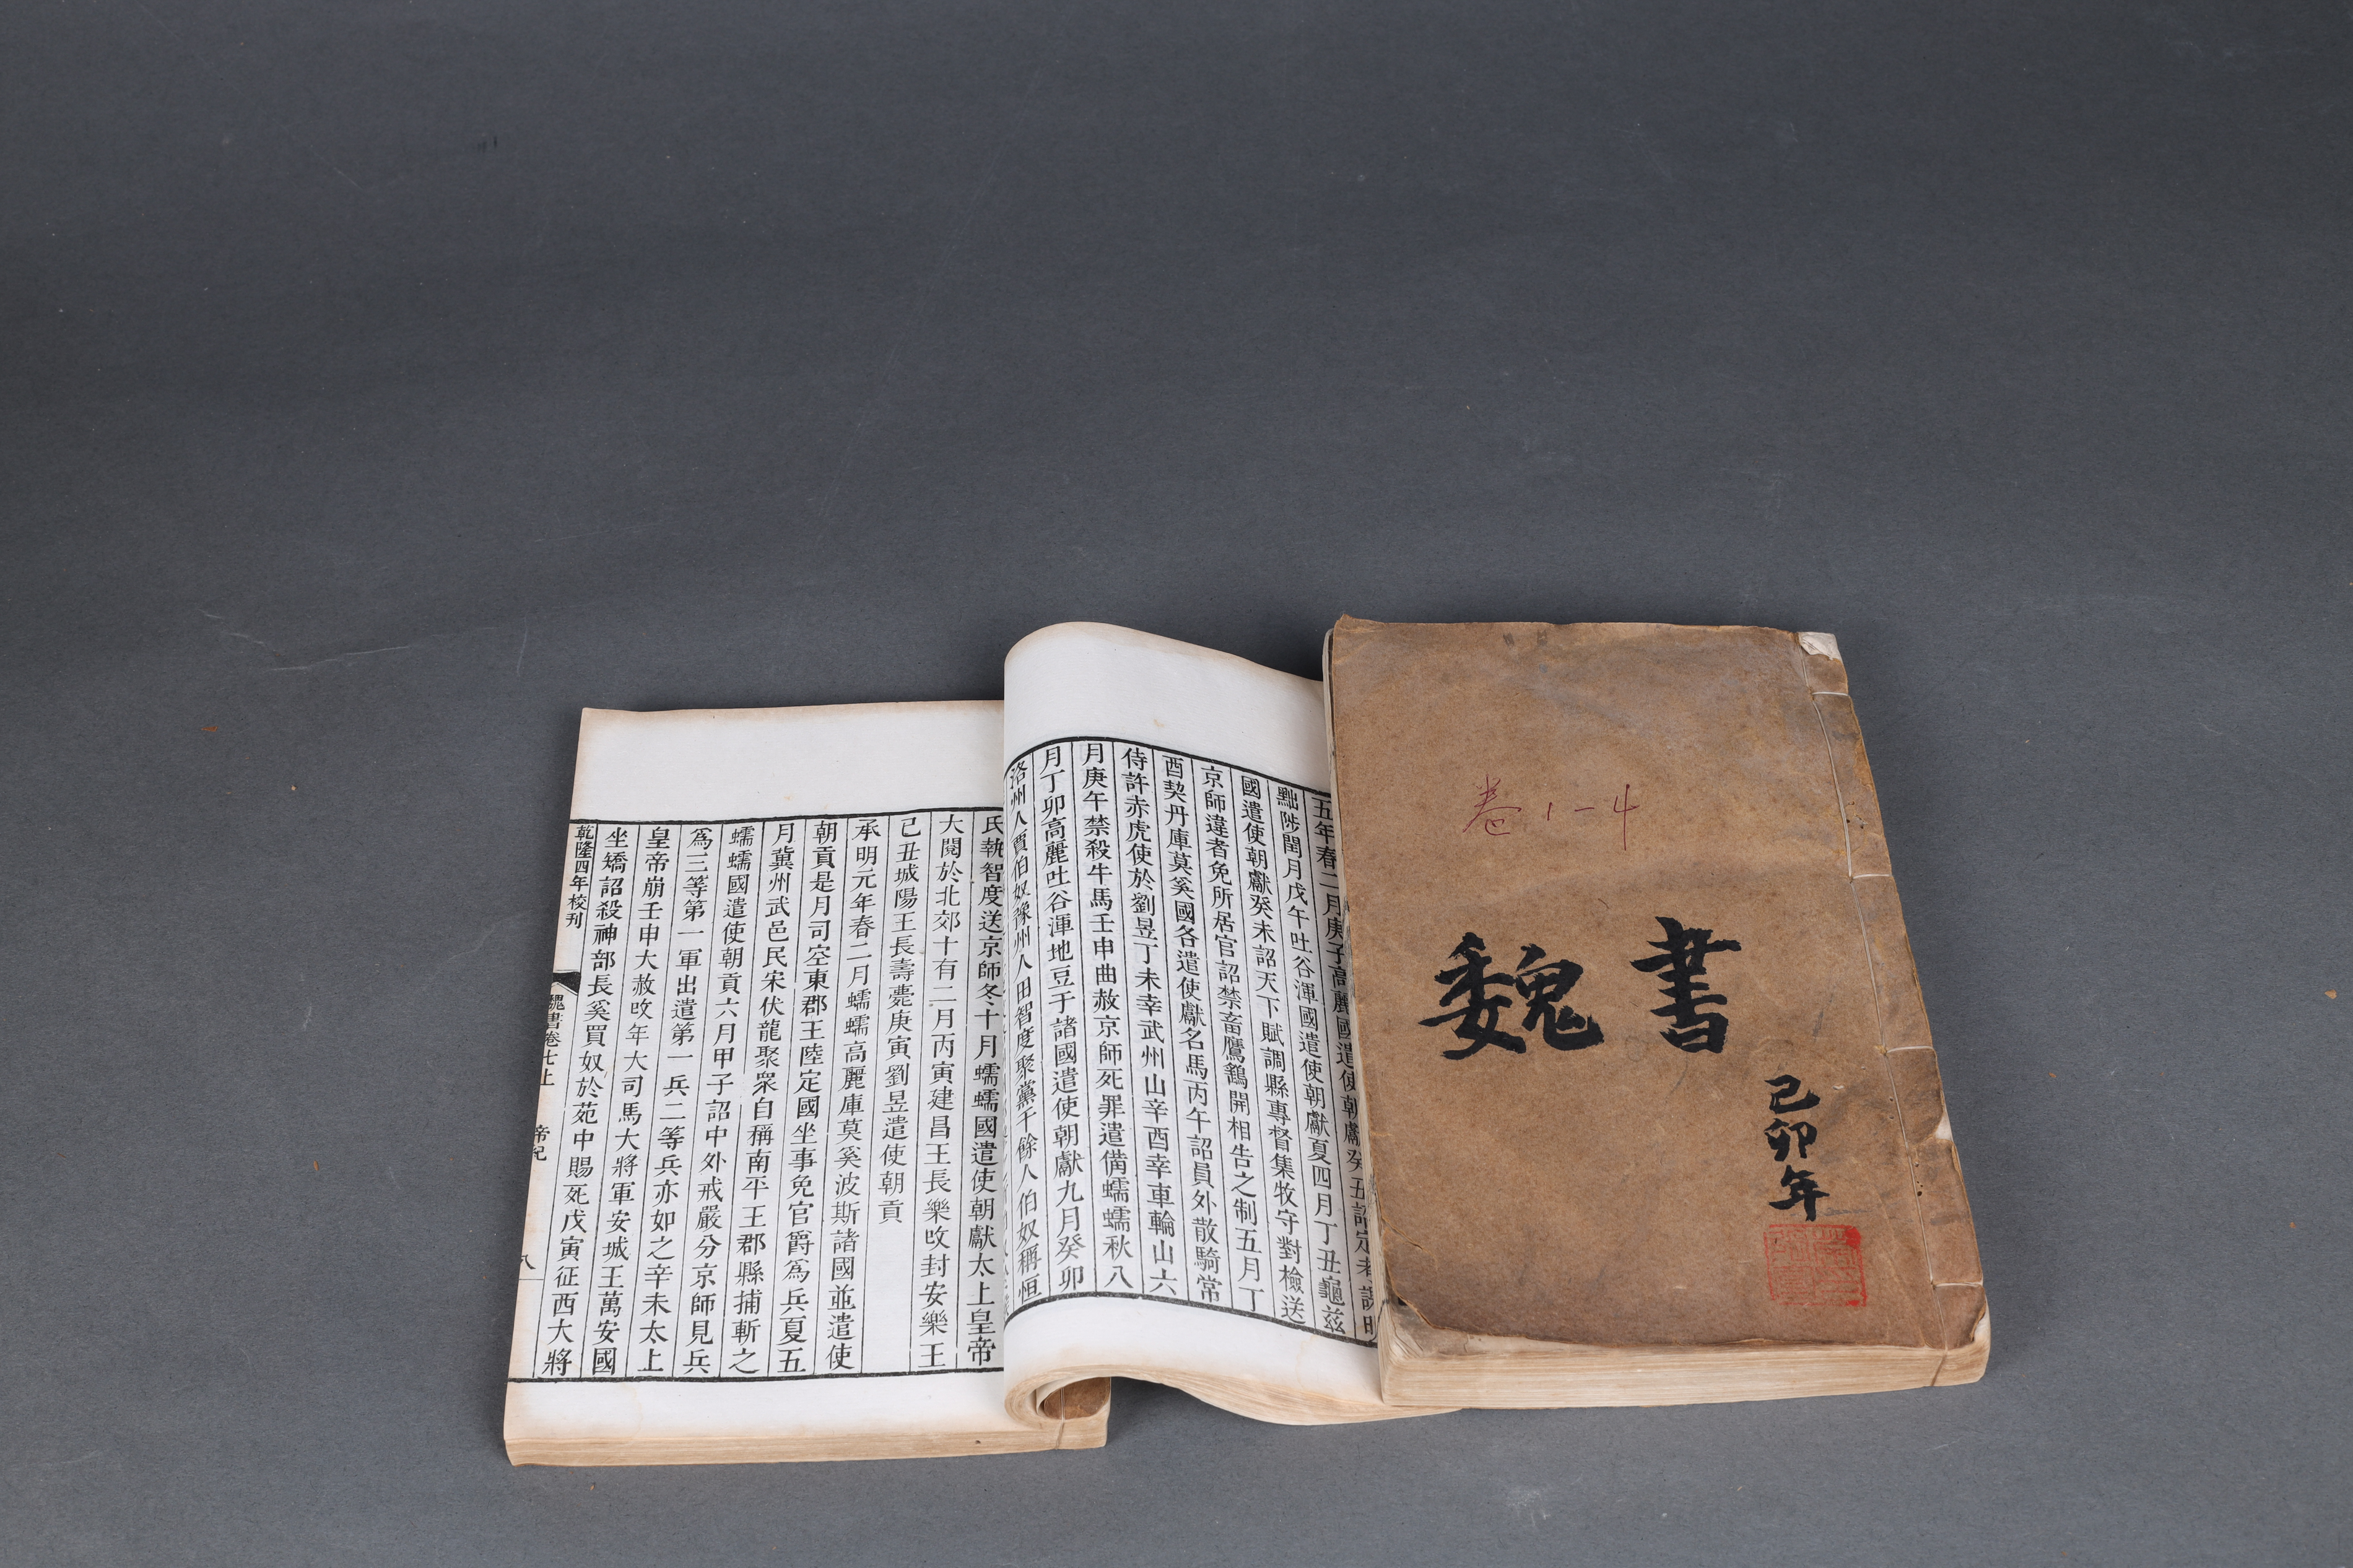 卷1-4
魏書
己卯年
五年春二月庚子高麗國遣使朝獻癸丑詔定考課明
黜陟閏月戊午吐谷渾國遣使朝獻夏四月丁丑龜茲
國遣使朝獻癸未詔天下賦調縣專督集牧守對檢送
京師違者免所居官詔禁畜鷹鷂開相告之制五月丁
酉契丹庫莫奚國各遣使獻名馬丙午詔員外散騎常
侍許赤虎使於劉昱丁未幸武州山辛酉幸車輪山六
月庚午禁殺牛馬壬申曲赦京師死罪遣備蠕蠕秋八
月丁卯高麗吐谷渾地豆于諸國遣使朝獻九月癸卯
洛州人賈伯奴豫州人田智度聚黨千餘人伯奴稱恒
氏執智度送京師冬十月蠕蠕國遣使朝獻太上皇帝
大閱於北郊十有二月丙寅建昌王長樂改封安樂王
己丑城陽王長壽薨庚寅劉昱遣使朝貢
承明元年春二月蠕蠕高麗庫莫奚波斯諸國並遣使
朝貢是月司空東郡王陸定國坐事免官爵為兵夏五
月冀州武邑民宋伏龍聚眾自稱南平王郡縣捕斬之
蠕蠕國遣使朝貢六月甲子詔中外戒嚴分京師見兵
為三等第一軍出遣第一兵二等兵亦如之辛未太上
皇帝崩壬申大赦改年大司馬大將軍安城王萬安國
坐矯詔殺神部長奚買奴於苑中賜死戊寅征西大將
乾隆四年校刊
魏書卷七上
帝紀
八